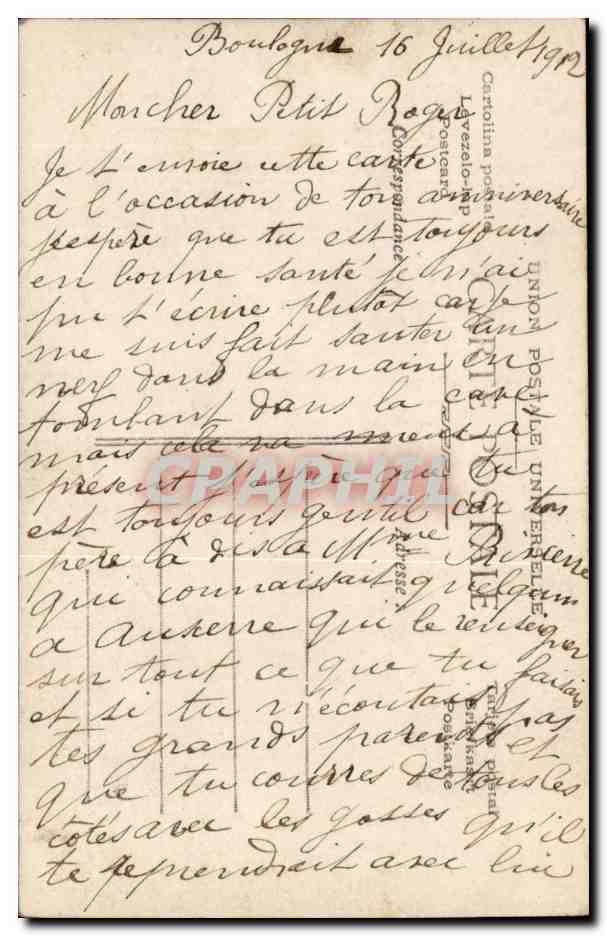 Boulogne 16 Juillet 1912
Moncher Petit Roger
Je t'envoie cette carte
à l'occasion de ton anniversaire
j'espère que tu est toujours
en bonne santé je n'ai
pu t'écrire plutôt car je
me suis fait sauter un
nerf dans la main en
tombant dans la cave
mais cela va mieux a
présent j'espère que tu
est toujours gentil car ton
père à dis a Mme
qui connaissait quelqun
a Auxerre qui le renseigner
sur tout ce que tu faisais
et si tu n'écoutais pas
tes grands parents et
que tu courres de tous les
côtés avec les gosses qu'il
te reprendrait avec lui
UNION POSTALE UNIVERSELLE
CARTE POSTALE
Cartolina postale
Levezelo-Lap
Postcard
Correspondance
Adresse
Postkarte
CPAPHIL